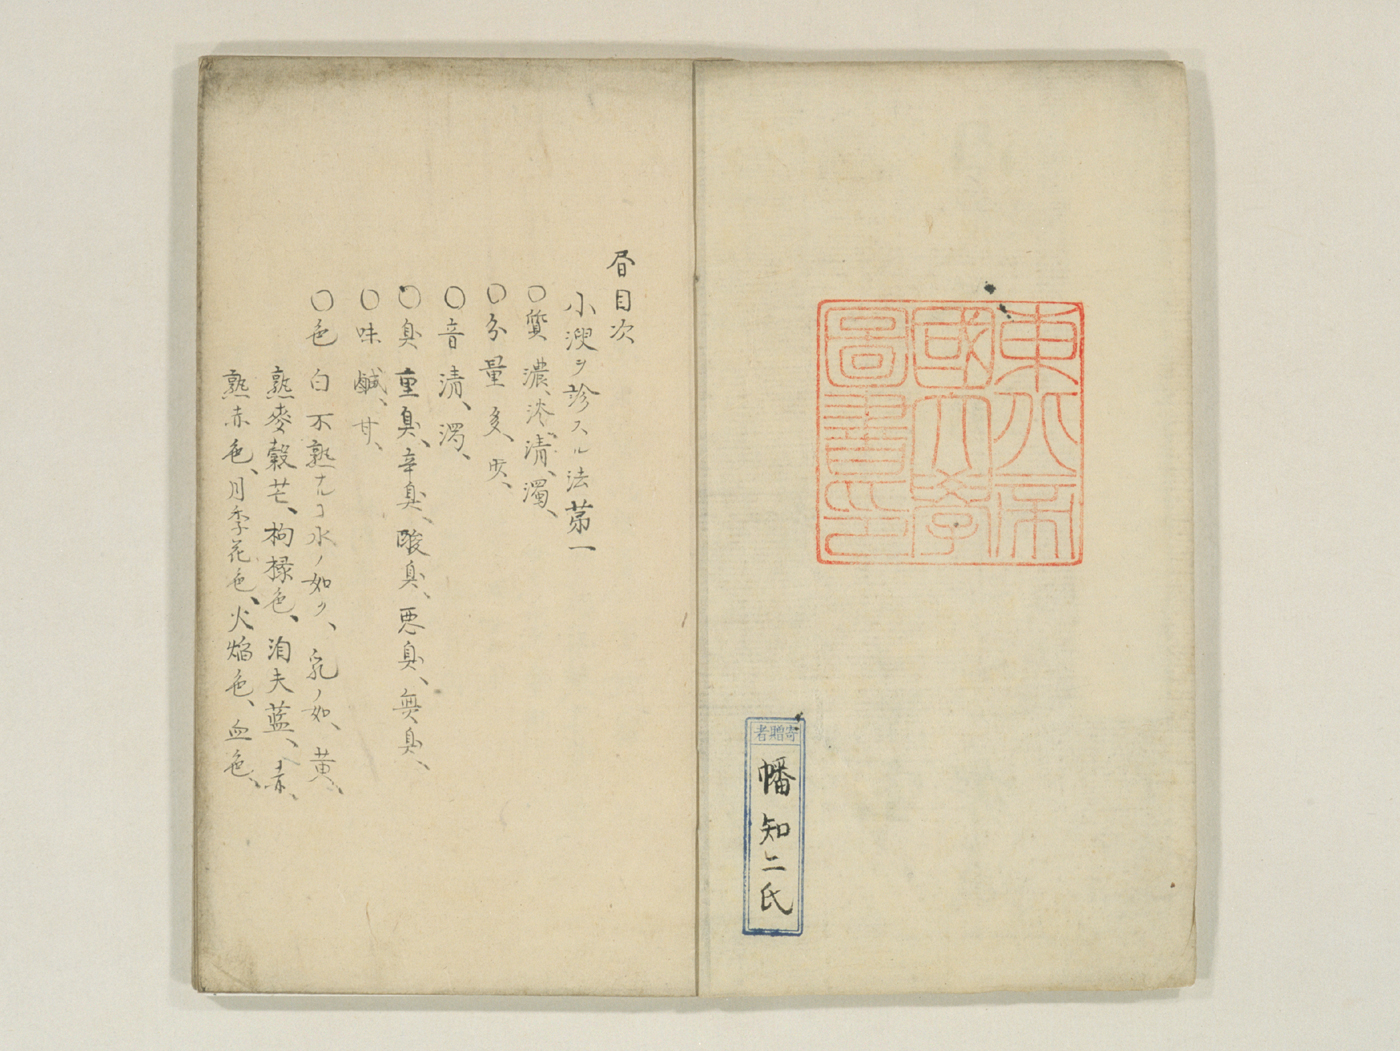 東北帝
國大學
圖書印
寄贈者
幡知二氏
目次
小溲ヲ診スル法第一
〇質 濃、淡、清、濁、
〇分量 多、少、
〇音 清、濁、
〇臭 重臭、辛臭、酸臭、悪臭、無臭、
〇味 鹹、甘、
〇色 白 不熟ナルコ水ノ如ク、乳ノ如、黄、
熟麥穀芒、枸櫞色、洎夫藍、赤、
熟赤色、月季花色、火焔色、血色、